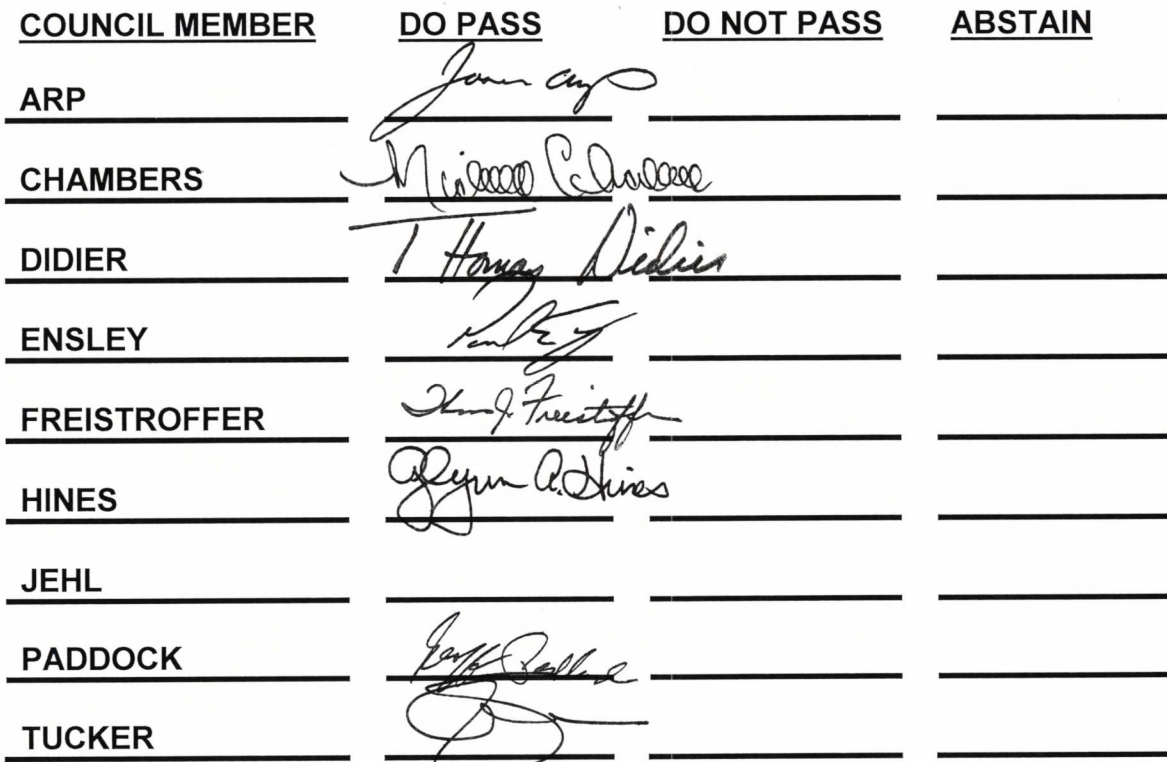 COUNCIL MEMBER DO PASS DO NOT PASS ABSTAIN
ARP
CHAMBERS
DIDIER Thomas Didier
ENSLEY
FREISTROFFER Freistroffer
HINES Glynn A. Hines
JEHL
PADDOCK
TUCKER